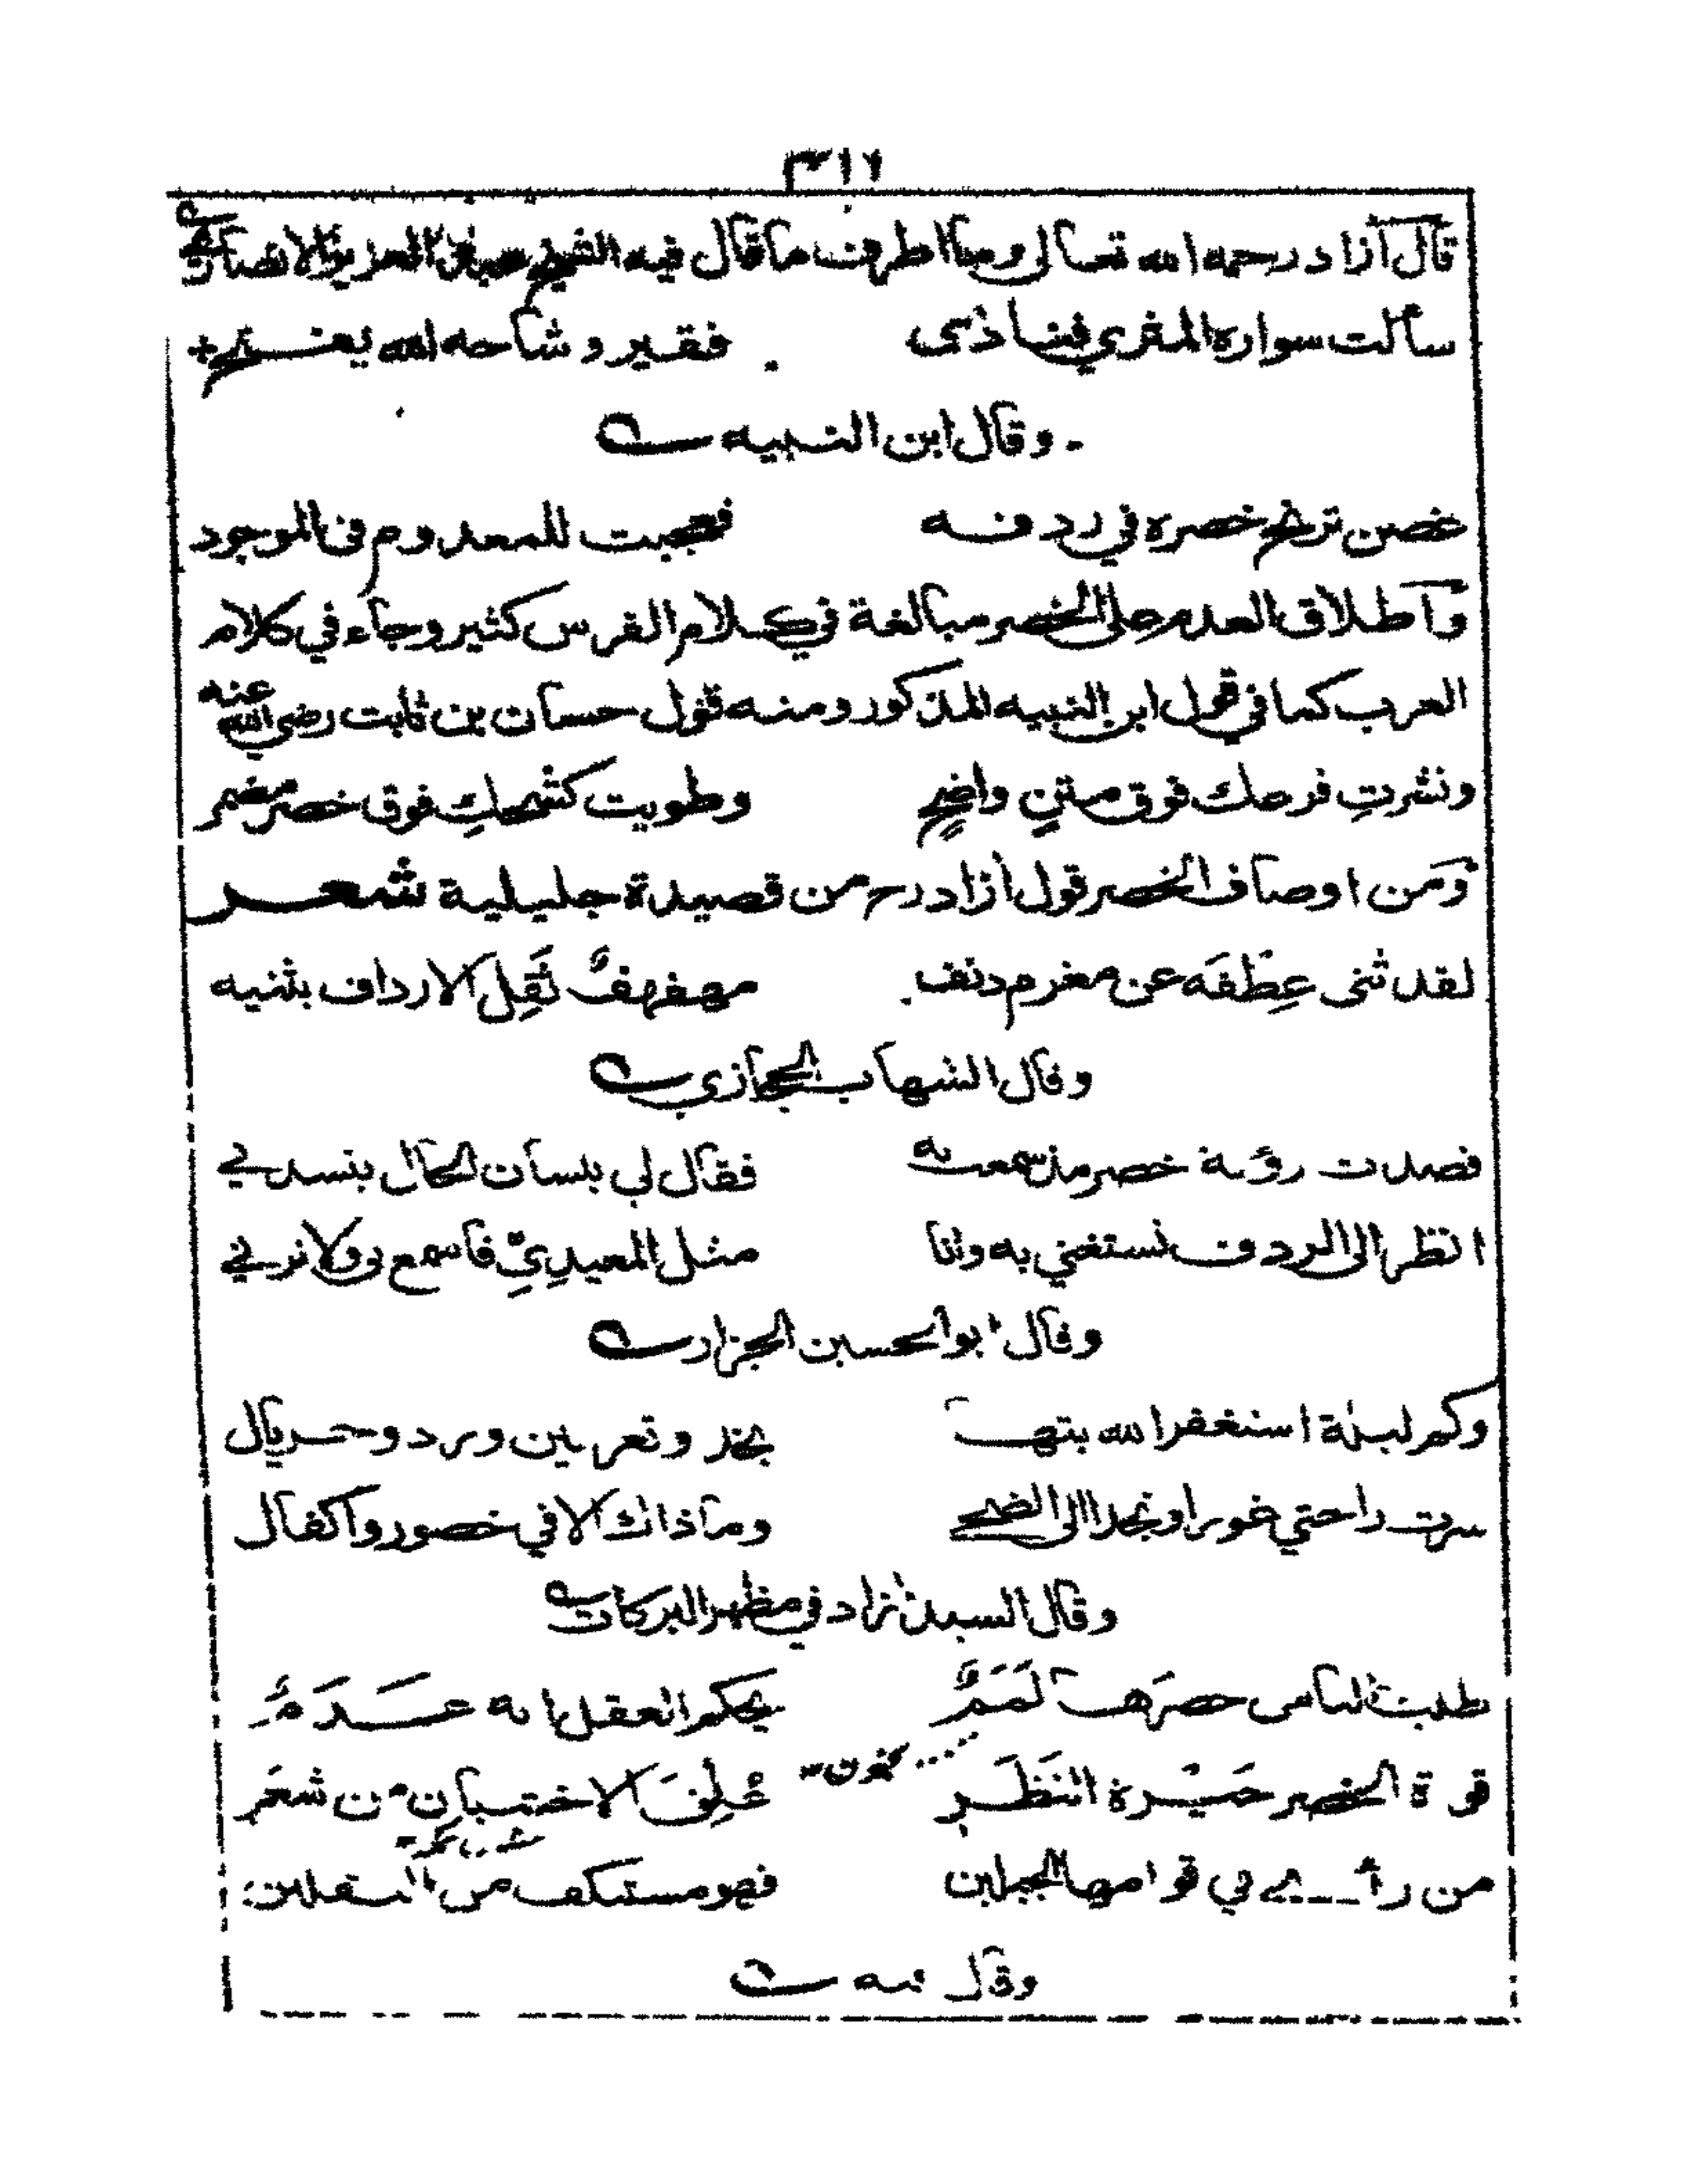 ٣١٢
قال آزاد رحمه الله تعالى وما اطرف ما قال فيه الشيخ عبد العزيز الانصاري
سألت سواره المثري فنادى فقير وشاحه الله يفتح
وقال ابن النبيه
غصن ترنح خصره في ردفه فعجبت للمعدوم في الموجود
واطلاق العدم على الخصر مبالغة في كلام الفرس كثير وجاء في كلام
العرب كما في قول ابن النبيه المذكور ومنه قول حسان بن ثابت رضي الله عنه
ونشرتِ فرعك فوق متنٍ واضحٍ وطويت كشحكِ فوق خصر مضمر
ومن اوصاف الخصر قول آزاد رح من قصيدة جليلية شعر
لقد ثنى عِطْفَه عن مغرم دنف مهفهفٌ ثَقِل الارداف يثنيه
وقال الشهاب الحجازي
قصدت رؤية خصر مذ سمعت به فقال لي بلسان الحال ينشدني
انظر الى الردف تستغني به وانا مثل المعيديِّ فاسمع بي ولا ترني
وقال ابو الحسين الجزار
وكم ليلة استغفر الله بتها بخد وثغر بين ورد وجريال
سرت راحتي غورا ونجدا الى الضحى وما ذاك الا في خصور واكفال
وقال السيد آزاد في مظهر البركات
طلبت الناس خصرَها لَمَمٌ يحكم العقل انه عَدَمٌ
قوة الخصر حَيْرة النَظَر عُلِّق الاختبان من شعَر
من رأى في قوامها الجبلين فهو مستكف من الثقلين
وقال منه